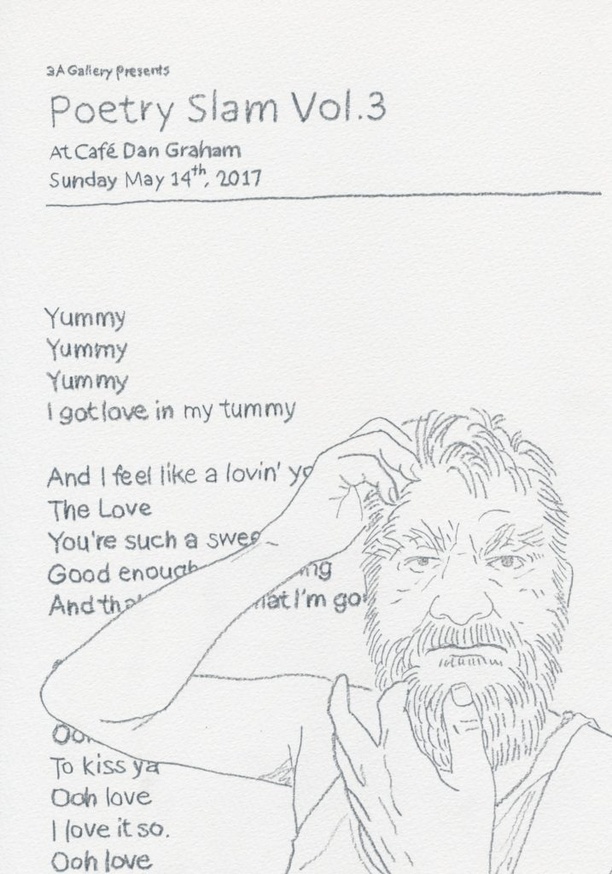 3A Gallery Presents
Poetry Slam Vol.3
At Café Dan Graham
Sunday May 14th, 2017
Yummy
Yummy
Yummy
I got love in my tummy
And I feel like a lovin'
The Love
You're such a
Good
And I'm
To kiss ya
Ooh love
I love it so.
Ooh love